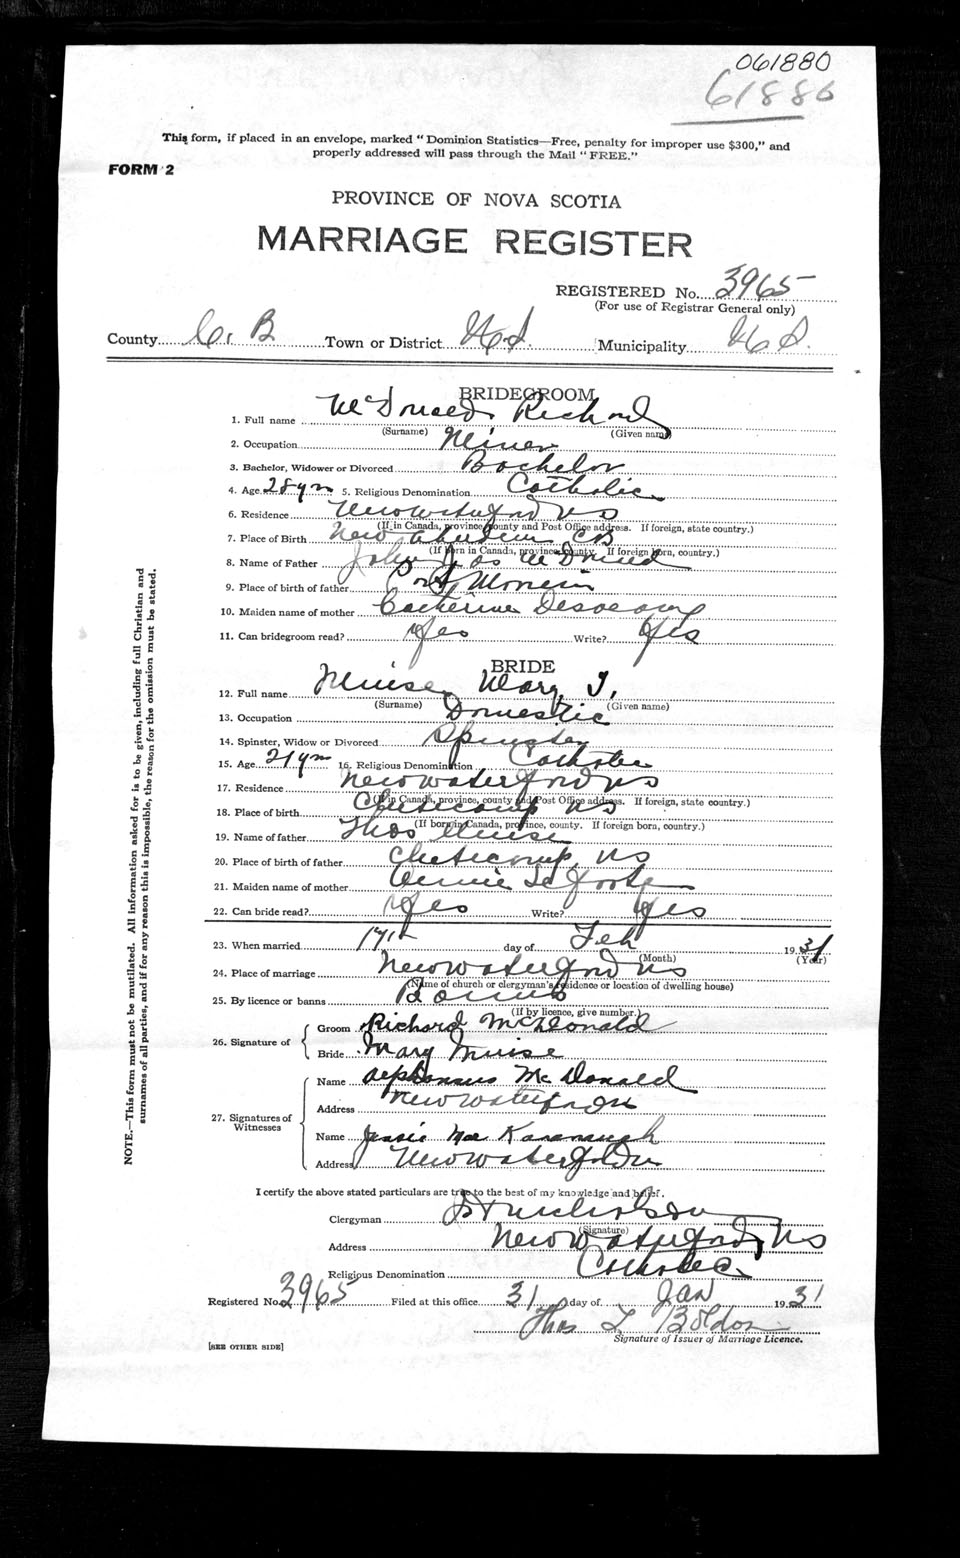 061880
61880
This form, if placed in an envelope, marked "Dominion Statistics—Free, penalty for improper use $300," and
properly addressed will pass through the Mail "FREE."
FORM 2
PROVINCE OF NOVA SCOTIA
MARRIAGE REGISTER
REGISTERED No. 3965
(For use of Registrar General only)
County C. B Town or District Municipality
BRIDEGROOM
1. Full name McDonald Richard
(Surname) (Given name)
2. Occupation Miner
3. Bachelor, Widower or Divorced Bachelor
4. Age 28 yrs 5. Religious Denomination Catholic
6. Residence New Waterford N S
(If in Canada, province, county and Post Office address. If foreign, state country.)
7. Place of Birth New Aberdeen CB
(If born in Canada, province, county. If foreign born, country.)
8. Name of Father John Jos McDonald
9. Place of birth of father Port Morien
10. Maiden name of mother Catherine
11. Can bridegroom read? Yes Write? Yes
BRIDE
12. Full name Muise, Mary J.
(Surname) (Given name)
13. Occupation Domestic
14. Spinster, Widow or Divorced Spinster
15. Age 21 yrs 16. Religious Denomination Catholic
17. Residence New Waterford N S
(If in Canada, province, county and Post Office address. If foreign, state country.)
18. Place of birth Cheticamp N S
(If born in Canada, province, county. If foreign born, country.)
19. Name of father Thos Muise
20. Place of birth of father Cheticamp, N S
21. Maiden name of mother Annie
22. Can bride read? Yes Write? Yes
23. When married 17th day of Feb 1931
(Month) (Year)
24. Place of marriage New Waterford N S
(Name of church or clergyman's residence or location of dwelling house)
25. By licence or banns Banns
(If by licence, give number.)
26. Signature of
Groom Richard McDonald
Bride Mary Muise
27. Signatures of Witnesses
Name Alphonsus McDonald
Address New Waterford
Name Jessie Mae Kavanaugh
Address New Waterford
I certify the above stated particulars are true to the best of my knowledge and belief.
Clergyman Nicholson
(Signature)
Address New Waterford, N S
Religious Denomination Catholic
Registered No. 3965 Filed at this office 31 day of Jan 1931
Thos L Boldon
Signature of Issuer of Marriage Licence.
[SEE OTHER SIDE]
NOTE.—This form must not be mutilated. All information asked for is to be given, including full Christian and
surnames of all parties, and if for any reason this is impossible, the reason for the omission must be stated.